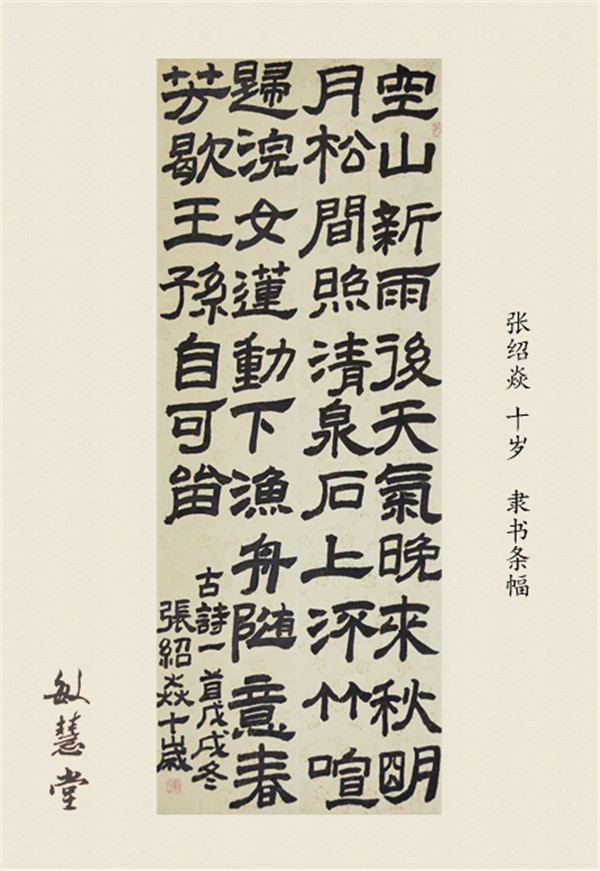 张绍焱 十岁 隶书条幅
空山新雨後天氣晚來秋朙
月松間照清泉石上流竹喧
歸浣女蓮動下漁舟随意春
芳歇王孫自可留
古詩一首戊戌冬
張紹焱十歲
敏慧堂